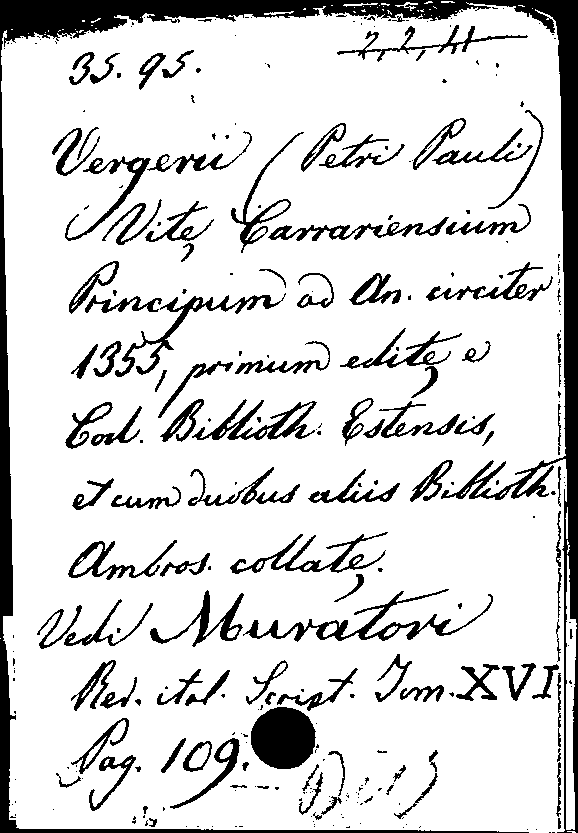 2,2,41
35. 95.
Vergerii (Petri Pauli)
Vitę Carrariensium
Principum ad An. circiter
1355, primum editę e
Cod. Biblioth. Estensis,
et cum duobus aliis Biblioth.
Ambros. collatę.
Vedi Muratori
Rer. ital. Script. Tom. XVI
Pag. 109.